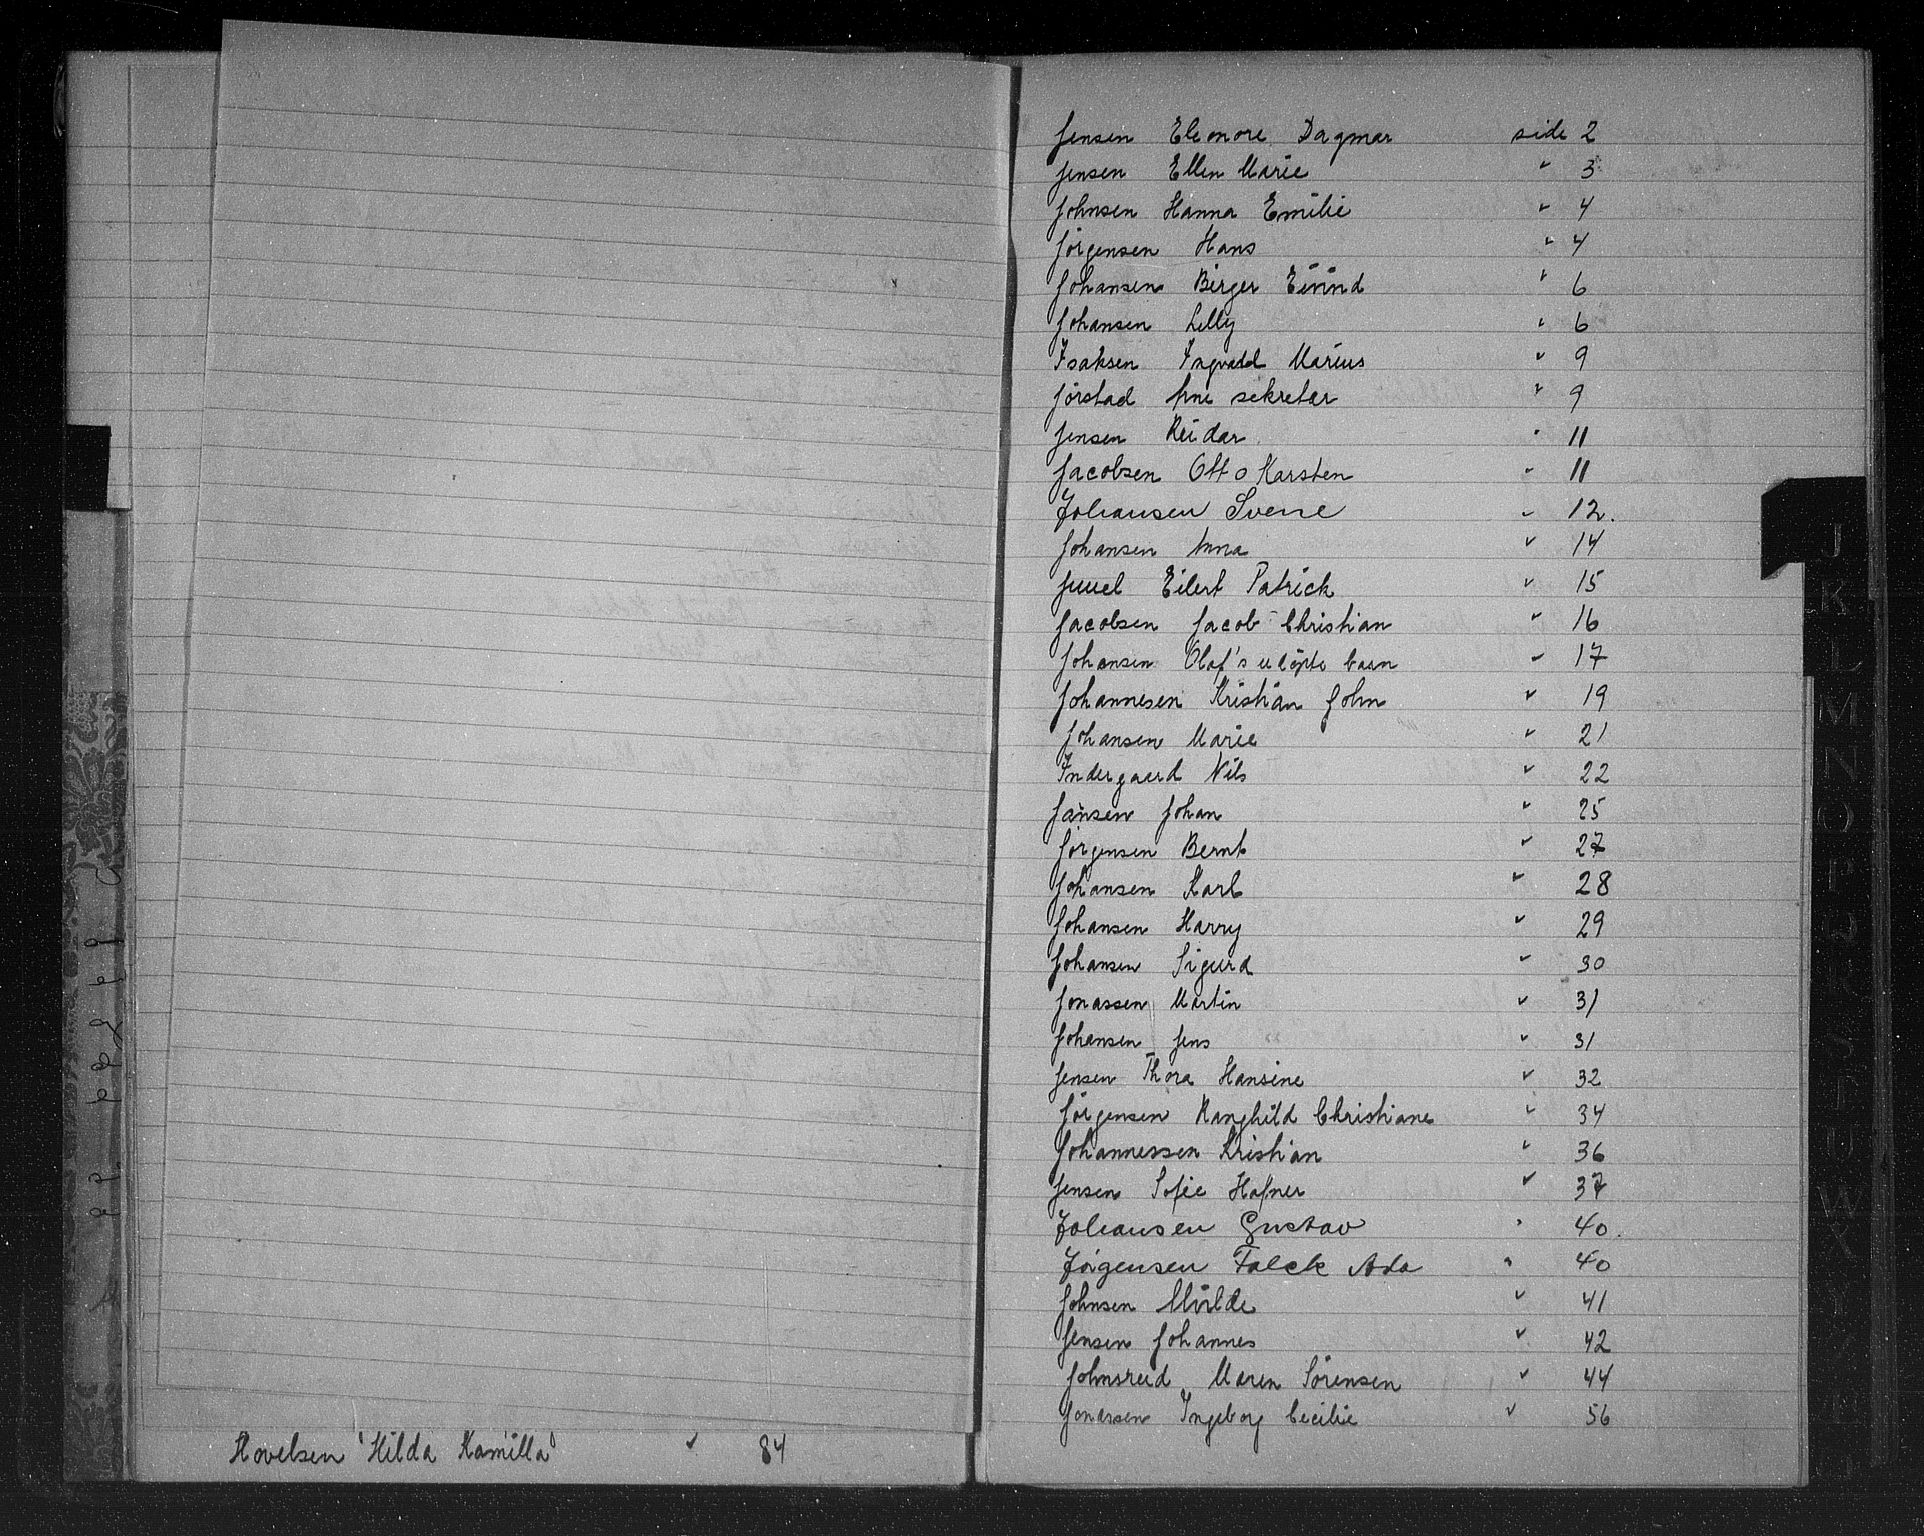 Hovelsen Hilda Kamilla " 84
Jensen Eleonore Dagmar side 2
Jensen Ellen Marie " 3
Johnsen Hanna Emilie " 4
Jörgensen Hans " 4
Johansen Birger Eivind " 6
Johansen Lilly " 6
Isaksen Ingvald Marius " 9
Jörstad Arne sekretær " 9
Jensen Reidar " 11
Jacobsen Otto Karsten " 11
Johansen Sverre " 12.
Johansen Anna " 14
Juuel Eilert Patrick " 15
Jacobsen Jacob Christian " 16
Johansen Olaf's udöpte barn " 17
Johannesen Kristian John " 19
Johansen Marie " 21
Indergaard Nils " 22
Jansen Johan " 25
Jörgensen Bernt " 27
Johansen Karl " 28
Johansen Harry " 29
Johansen Sigurd " 30
Jonassen Martin " 31
Johansen Jens " 31
Jensen Thora Hansine " 32
Jörgensen Ranghild Christiane " 34
Johannessen Kristian " 36
Jensen Sofie Hafner " 37
Johansen Gustav " 40.
Jørgensen Falck Ada " 40
Johnsen Milde " 41
Jensen Johannes " 42
Johnsrud Maren Sörensen " 44
Jonassen Ingeborg Cecilie " 56
J
K
L
M
N
O
P
Q
R
S
T
U
W
X